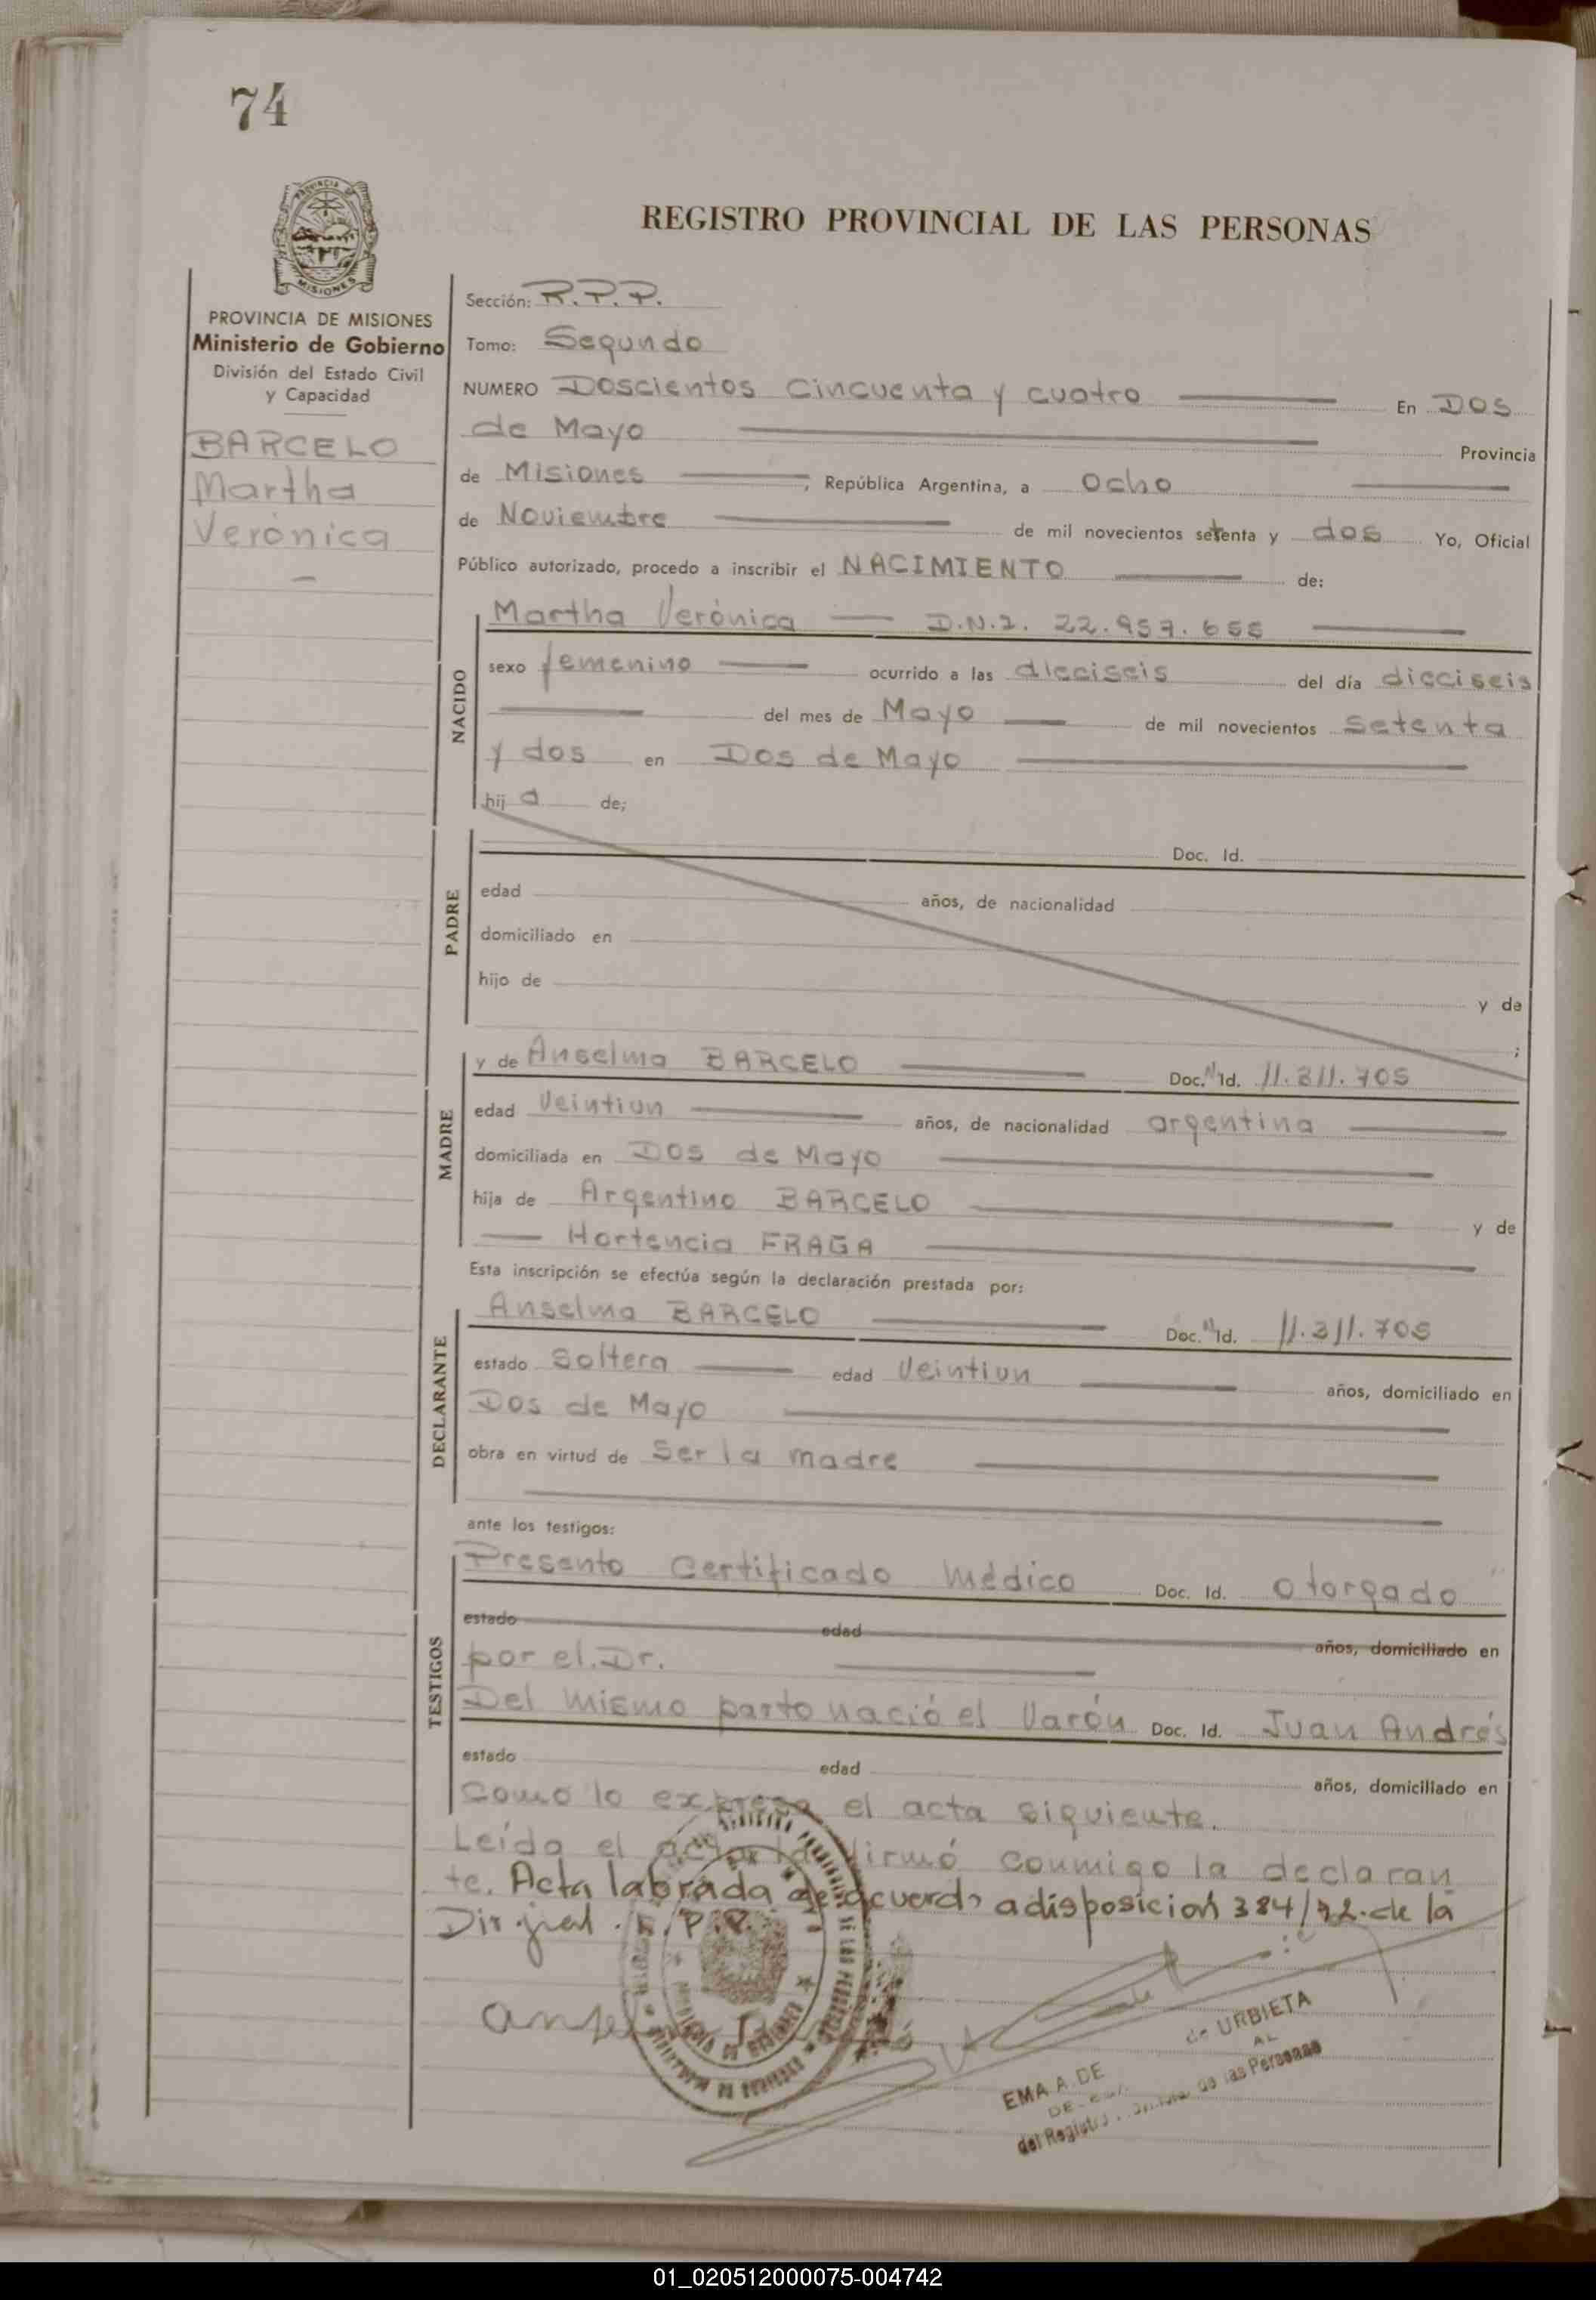 74
REGISTRO PROVINCIAL DE LAS PERSONAS
PROVINCIA DE MISIONES
Ministerio de Gobierno
División del Estado Civil
y Capacidad
BARCELO
Martha
Verónica
Sección: R.P.P.
Tomo: Segundo
NUMERO Doscientos Cincuenta y cuatro En Dos
de Mayo Provincia
de Misiones, República Argentina, a Ocho
de Noviembre de mil novecientos setenta y dos Yo, Oficial
Público autorizado, procedo a inscribir el NACIMIENTO de:
NACIDO
Martha Verónica D.N.I. 22.957.
sexo femenino ocurrido a las dieciseis del día dieciseis
del mes de Mayo de mil novecientos setenta
y dos en Dos de Mayo
hij a de;
PADRE
Doc. Id.
edad años, de nacionalidad
domiciliado en
hijo de y de
;
MADRE
y de Anselma BARCELO Doc. Id. 11.311.705
edad Veintiun años, de nacionalidad argentina
domiciliada en Dos de Mayo
hija de Argentino BARCELO y de
Hortencia FRAGA
Esta inscripción se efectúa según la declaración prestada por:
DECLARANTE
Anselma BARCELO Doc. Id. 11.311.705
estado Soltera edad Veintiun años, domiciliado en
Dos de Mayo
obra en virtud de Ser la madre
ante los testigos:
TESTIGOS
Presento Certificado Médico Doc. Id. otorgado
estado edad años, domiciliado en
por el Dr.
Del mismo parto nació el Varón Doc. Id. Juan Andrés
estado edad años, domiciliado en
como lo expresa el acta siguiente.
Leída el acta la firmó conmigo la declaran
te. Acta labrada de acuerdo a disposición 384/72 de la
Dir. gral. R.P.P.
de URBIETA
EMA A. DE
de las Personas
01_020512000075-004742